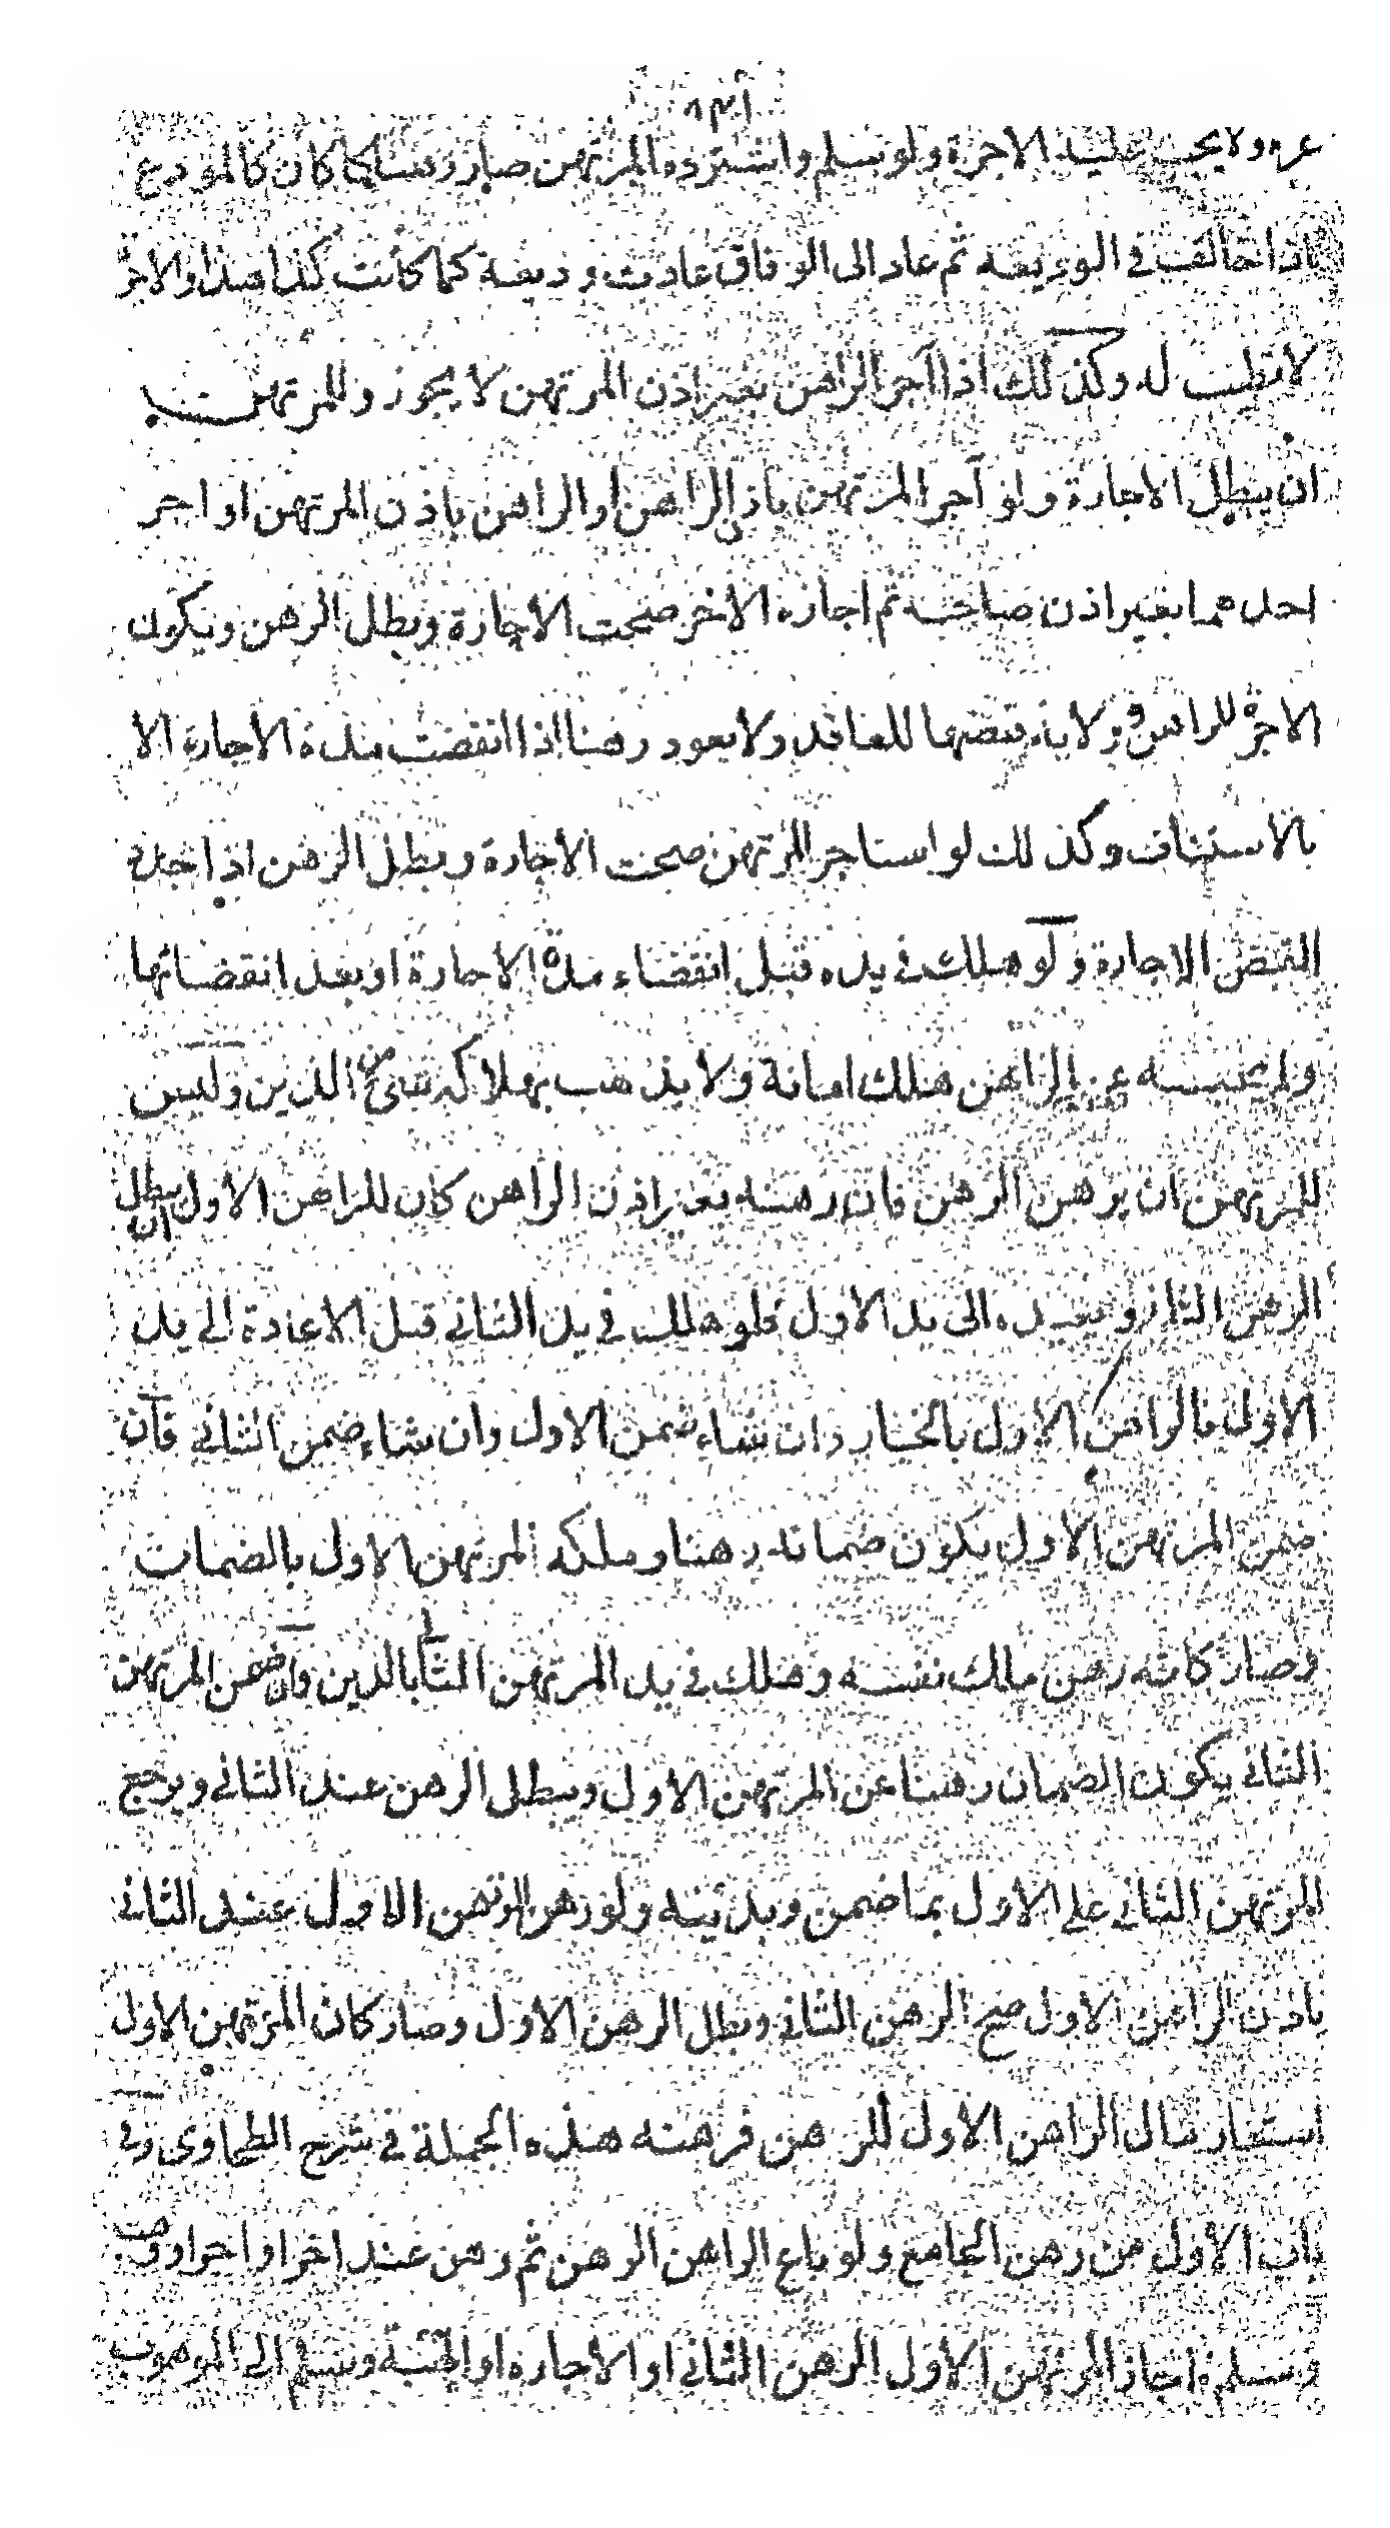 غيره ولا يجب عليه الاجرة ولو سلم واسترده المرتهن صار رهنا كما كان كالمودع
اذا خالف في الوديعة ثم عاد الى الوفاق عادت وديعة كما كانت كذا هذا والاجر
لا يطيب له وكذلك اذا آجر الراهن بغير اذن المرتهن لا يجوز وللمرتهن
ان يبطل الاجارة ولو آجر المرتهن باذن الراهن او الراهن باذن المرتهن او اجر
احدهما بغير اذن صاحبه ثم اجازه الاخر صحت الاجارة وبطل الرهن ويكون
الاجرة للراهن وولاية قبضها للعاقد ولا يعود رهنا اذا انقضت مدة الاجارة الا
بالاستئناف وكذلك لو استاجر المرتهن صحت الاجارة وبطل الرهن اذا جدد
القبض للاجارة ولو هلك في يده قبل انقضاء مدة الاجارة او بعد انقضائها
ولم يحبسه عن الراهن هلك امانة ولا يذهب بهلاكه شئ من الدين وليس
للمرتهن ان يرهن الرهن فان رهنه بغير اذن الراهن كان للراهن الاول ان يبطل
الرهن الثاني ويعيده الى يد الاول فلو هلك في يد الثاني قبل الاعادة الى يد
الاول فالراهن الاول بالخيار ان شاء ضمن الاول وان شاء ضمن الثاني فان
ضمن المرتهن الاول يكون ضمانه رهنا وملكه المرتهن الاول بالضمان
وصار كانه رهن ملك نفسه وهلك في يد المرتهن الثاني بالدين وان ضمن المرتهن
الثاني يكون الضمان رهنا عن المرتهن الاول وبطل الرهن عند الثاني ويرجع
المرتهن الثاني على الاول بما ضمن وبدينه ولو رهن المرتهن الاول عند الثاني
باذن الراهن الاول صح الرهن الثاني وبطل الرهن الاول وصار كان المرتهن الاول
استعار مال الراهن الاول للرهن فرهنه هذه الجملة في شرح الطحاوي وفي
باب الاول من رهن الجامع ولو باع الراهن الرهن ثم رهن عند اخر او اجر او وهب
وسلم فاجاز المرتهن الاول الرهن الثاني او الاجارة او الهبة وسلم الى الموهوب